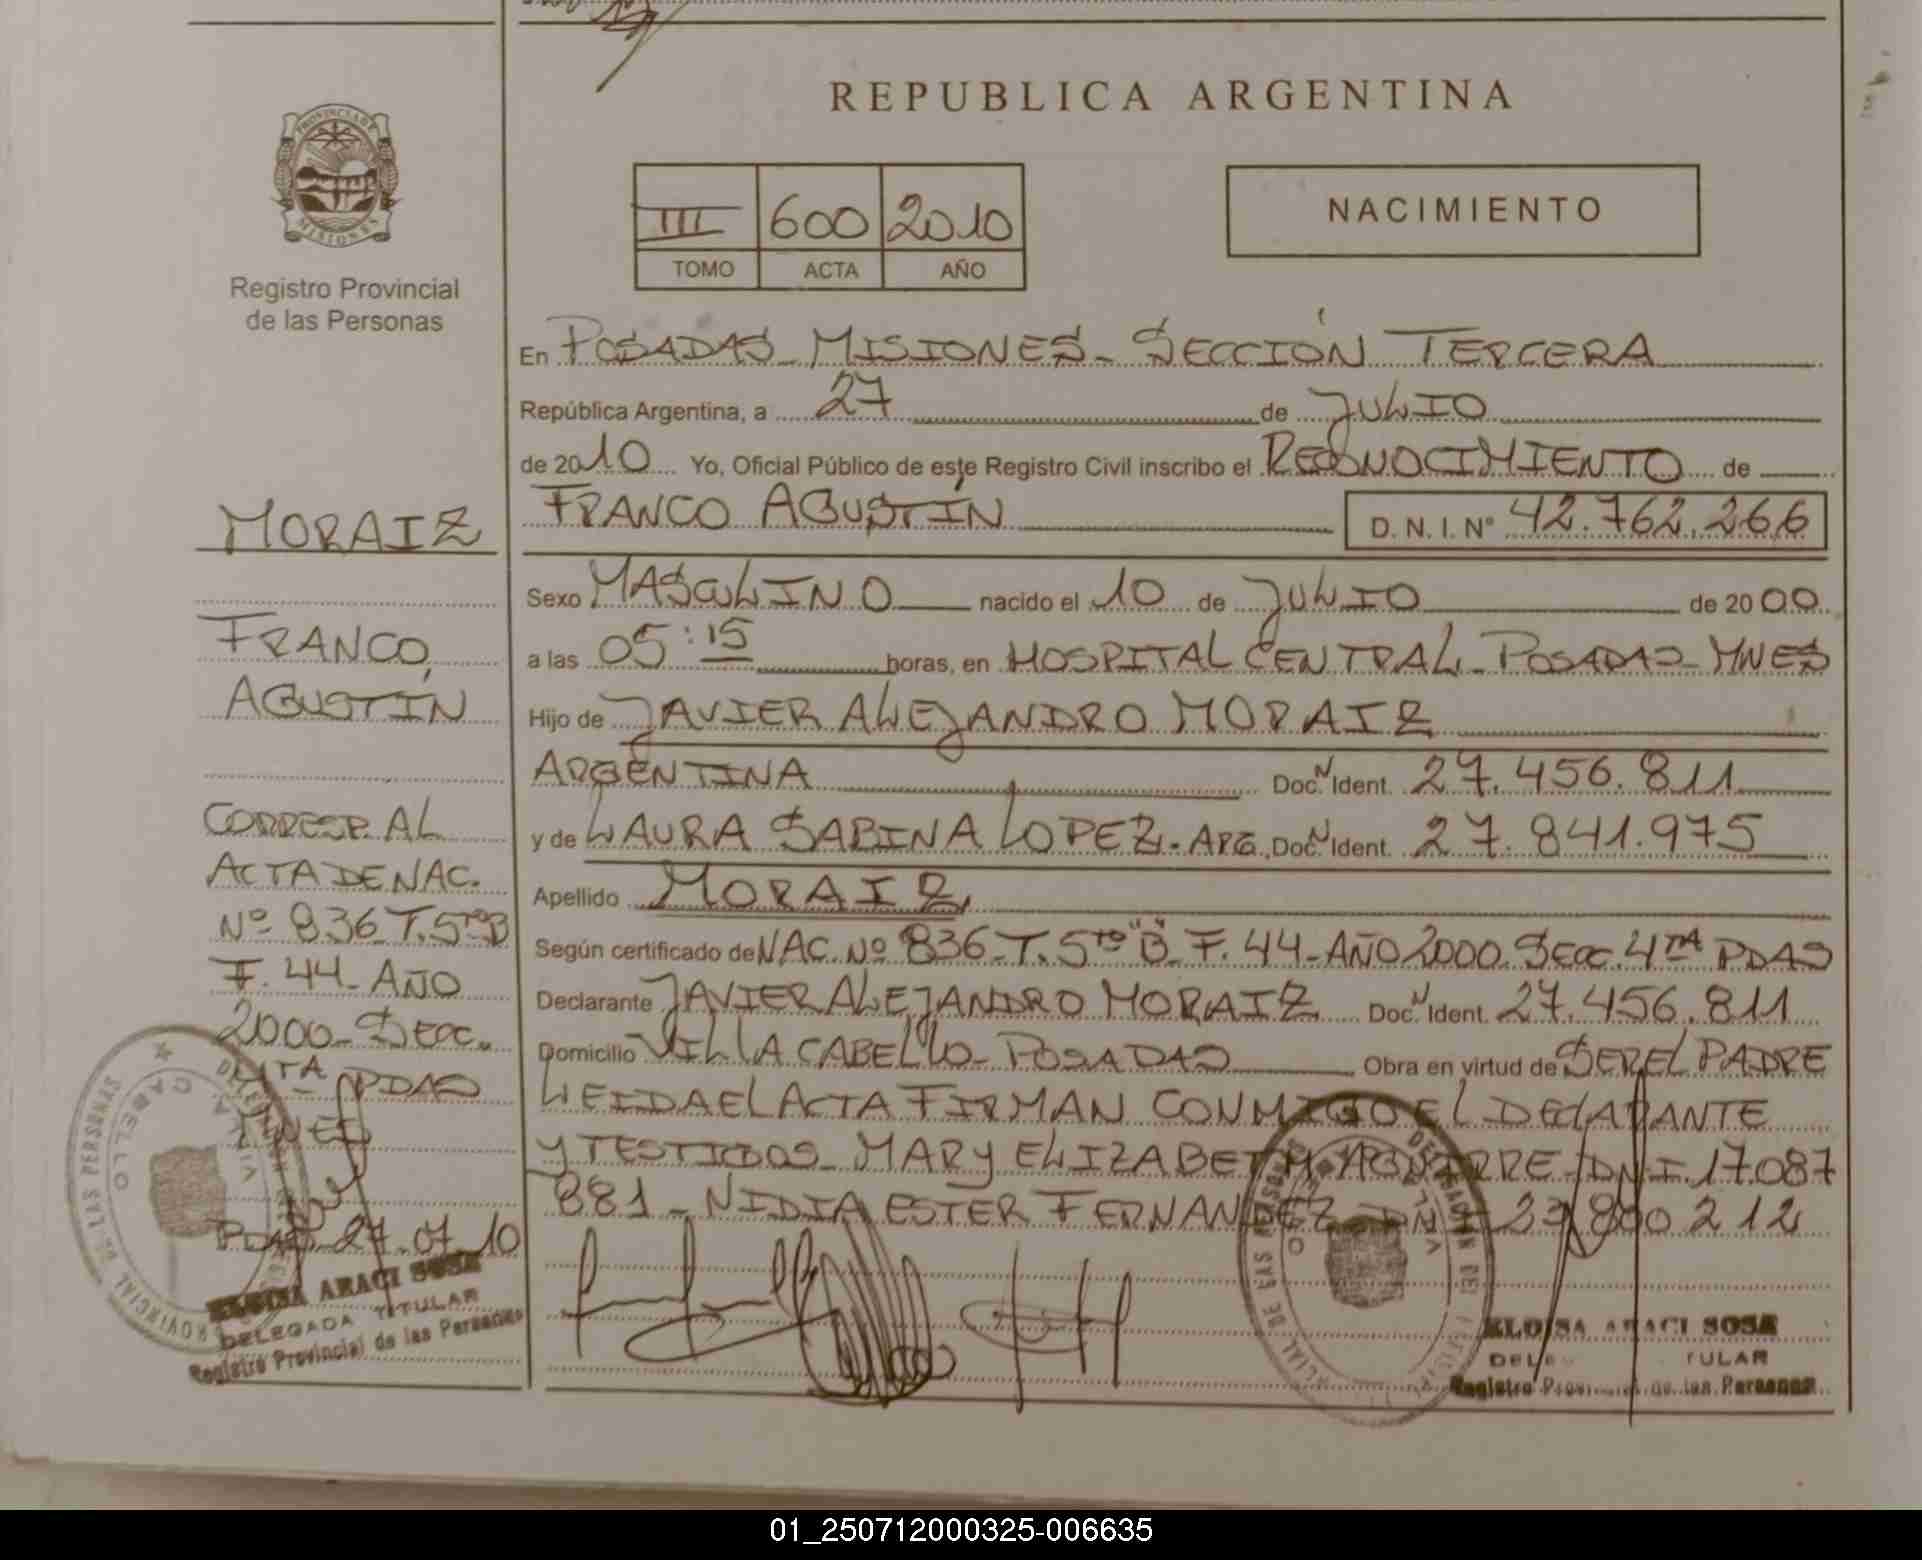 REPUBLICA ARGENTINA
PROVINCIA DE
MISIONES
Registro Provincial
de las Personas
III 600 2010
TOMO ACTA AÑO
NACIMIENTO
En POSADAS - MISIONES - SECCIÓN TERCERA
República Argentina, a 27 de JULIO
de 2010 Yo, Oficial Público de este Registro Civil inscribo el RECONOCIMIENTO de
FRANCO AGUSTÍN D. N. I. N° 42.762.266
Sexo MASCULINO nacido el 10 de JULIO de 2000
a las 05:15 horas, en HOSPITAL CENTRAL - POSADAS - MNES
Hijo de JAVIER ALEJANDRO MORAIZ
ARGENTINA Doc. N Ident. 27.456.811
y de LAURA SABINA LOPEZ - ARG. Doc. N Ident. 27.841.975
Apellido MORAIZ
Según certificado de NAC. Nº 836 - T. 5to "B" - F. 44 - AÑO 2000 - SECC. 4TA PDAS
Declarante JAVIER ALEJANDRO MORAIZ Doc. N Ident. 27.456.811
Domicilio VILLA CABELLO - POSADAS Obra en virtud de SER EL PADRE
LEIDA EL ACTA FIRMAN CONMIGO EL DECLARANTE
Y TESTIGOS - MARY ELIZABETH AGUIRRE - DNI. 17.087
881 - NIDIA ESTER FERNANDEZ - DNI 23.800.212
ELOISA ARACI SOSA
Registro Provincial de las Personas
MORAIZ
FRANCO,
AGUSTÍN
CORRESP. AL
ACTA DE NAC.
Nº 836 T. 5to B
F. 44 - AÑO
2000 - SECC.
4TA PDAS
MNES
PDAS 27.07.10
ELOISA ARACI SOSA
DELEGADA TITULAR
Registro Provincial de las Personas
01_250712000325-006635